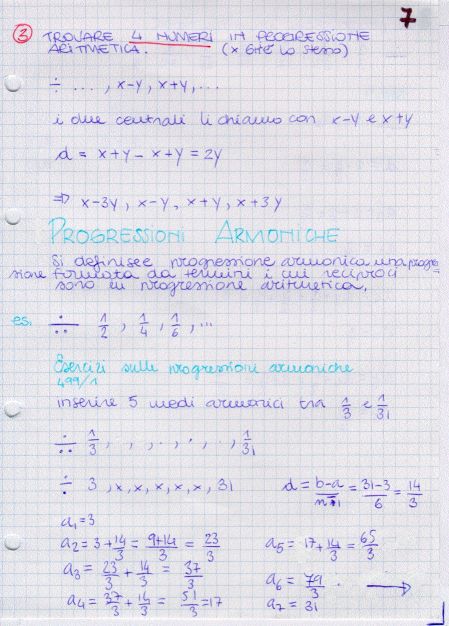 7
3 TROVARE 4 NUMERI IN PROGRESSIONE
ARITMETICA. (x 6 è lo stesso)
÷ ... , x-y, x+y, ...
i due centrali li chiamo con x-y e x+y
d = x+y - x+y = 2y
⇒ x-3y, x-y, x+y, x+3y
PROGRESSIONI ARMONICHE
Si definisce progressione armonica una progres
sione formata da termini i cui reciproci
sono in progressione aritmetica.
es. ÷ 1/2 , 1/4 , 1/6 , ...
Esercizi sulle progressioni armoniche
499/1
inserire 5 medi armonici tra 1/3 e 1/31
÷ 1/3 , , , . , . , . , 1/31
÷ 3, x, x, x, x, x, 31 d = b-a/n+1 = 31-3/6 = 14/3
a1 = 3
a2 = 3 + 14/3 = 9+14/3 = 23/3 a5 = 17 + 14/3 = 65/3
a3 = 23/3 + 14/3 = 37/3 a6 = 79/3 . →
a4 = 37/3 + 14/3 = 51/3 = 17 a7 = 31